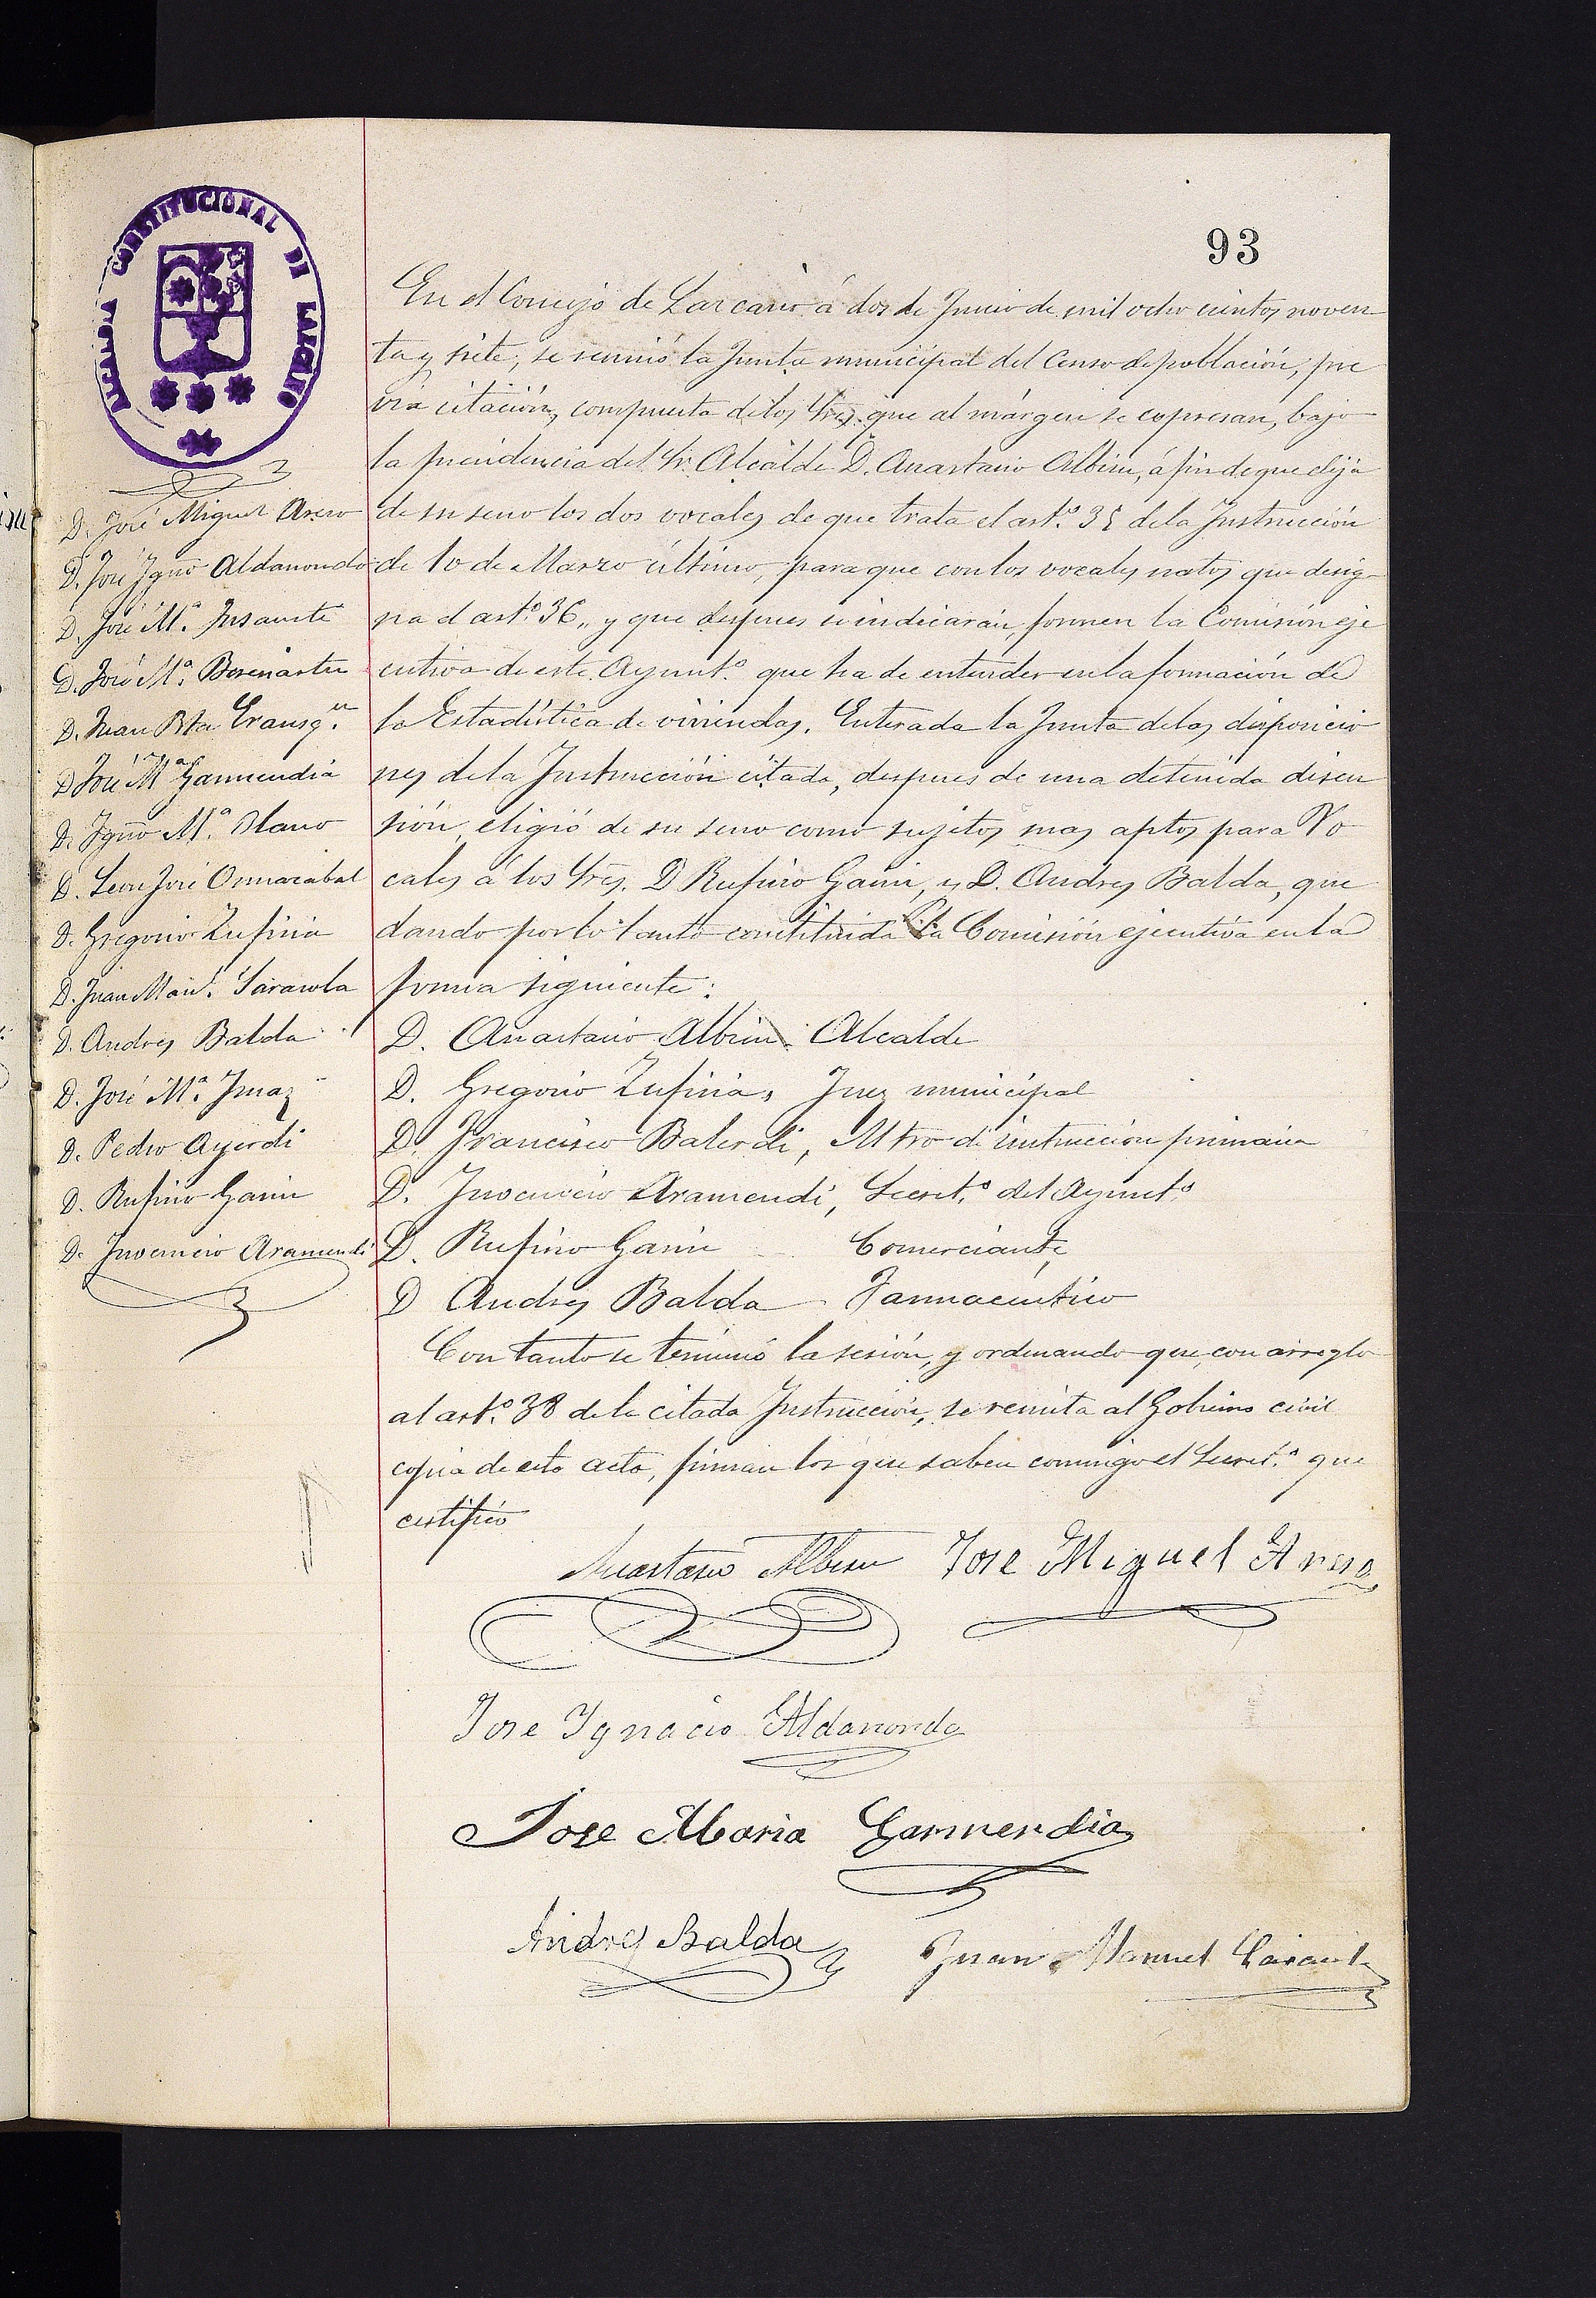 93
ALCALDIA CONSTITUCIONAL DE LAZCANO
D. José Miguel Areso
D. José Ygnº Aldanondo
D. José M.ª Insausti
D. José M.ª Berenastu
D. Juan Bta Erausqn.
D José Mª Garmendia
D. Ygnº M.ª Olano
D. Leon José Ormazabal
D. Gregorio Zufiria
D. Juan Manl. Sarasola
D. Andres Balda
D. José M.ª Imaz
D. Pedro Ayerdi
D. Rufino Garin
D. Inocencio Aramendi
En el Concejo de Lazcano á dos de Junio de mil ocho cientos noven
ta y siete, se reunió la Junta municipal del Censo de población, pre
via citación, compuesta de los Sres. que al márgen se expresan, bajo
la presidencia del Sr. Alcalde D. Anastasio Albisu, á fin de que elija
de su seno los dos vocales de que trata el art.º 35 de la Instrucción
de 10 de Marzo último, para que con los vocales natos que desig
na el art.º 36, y que despues se indicarán, formen la Comisión eje
cutiva de este Ayunt.º que ha de entender en la formación de
la Estadística de viviendas. Enterada la Junta de las disposicio
nes de la Instrucción citada, despues de una detenida discu
sión, eligió de su seno como sujetos mas aptos para Vo
cales á los Sres. D Rufino Garin, y D. Andres Balda, que
dando por lo tanto constituida la Comisión ejecutiva en la
forma siguiente:
D. Anastasio Albisu Alcalde
D. Gregorio Zufiria, Juez municipal
D. Francisco Balerdi, Mtro de instrucción primaria
D. Inocencio Aramendi, Secret.º del Ayunt.º
D. Rufino Garin Comerciante,
D Andres Balda Farmaceutico
Con tanto se terminó la sesión, y ordenando que, con arreglo
al art.º 38 de la citada Instrucción, se remita al Gobierno civil
copia de esta acta, firman los que saben conmigo el Secret.º que
certifico
Anastasio Albisu Jose Miguel Areso
Jose Ygnacio Aldanondo
Jose Maria Garmendia
Andres Balda Juan Manuel Sarasola